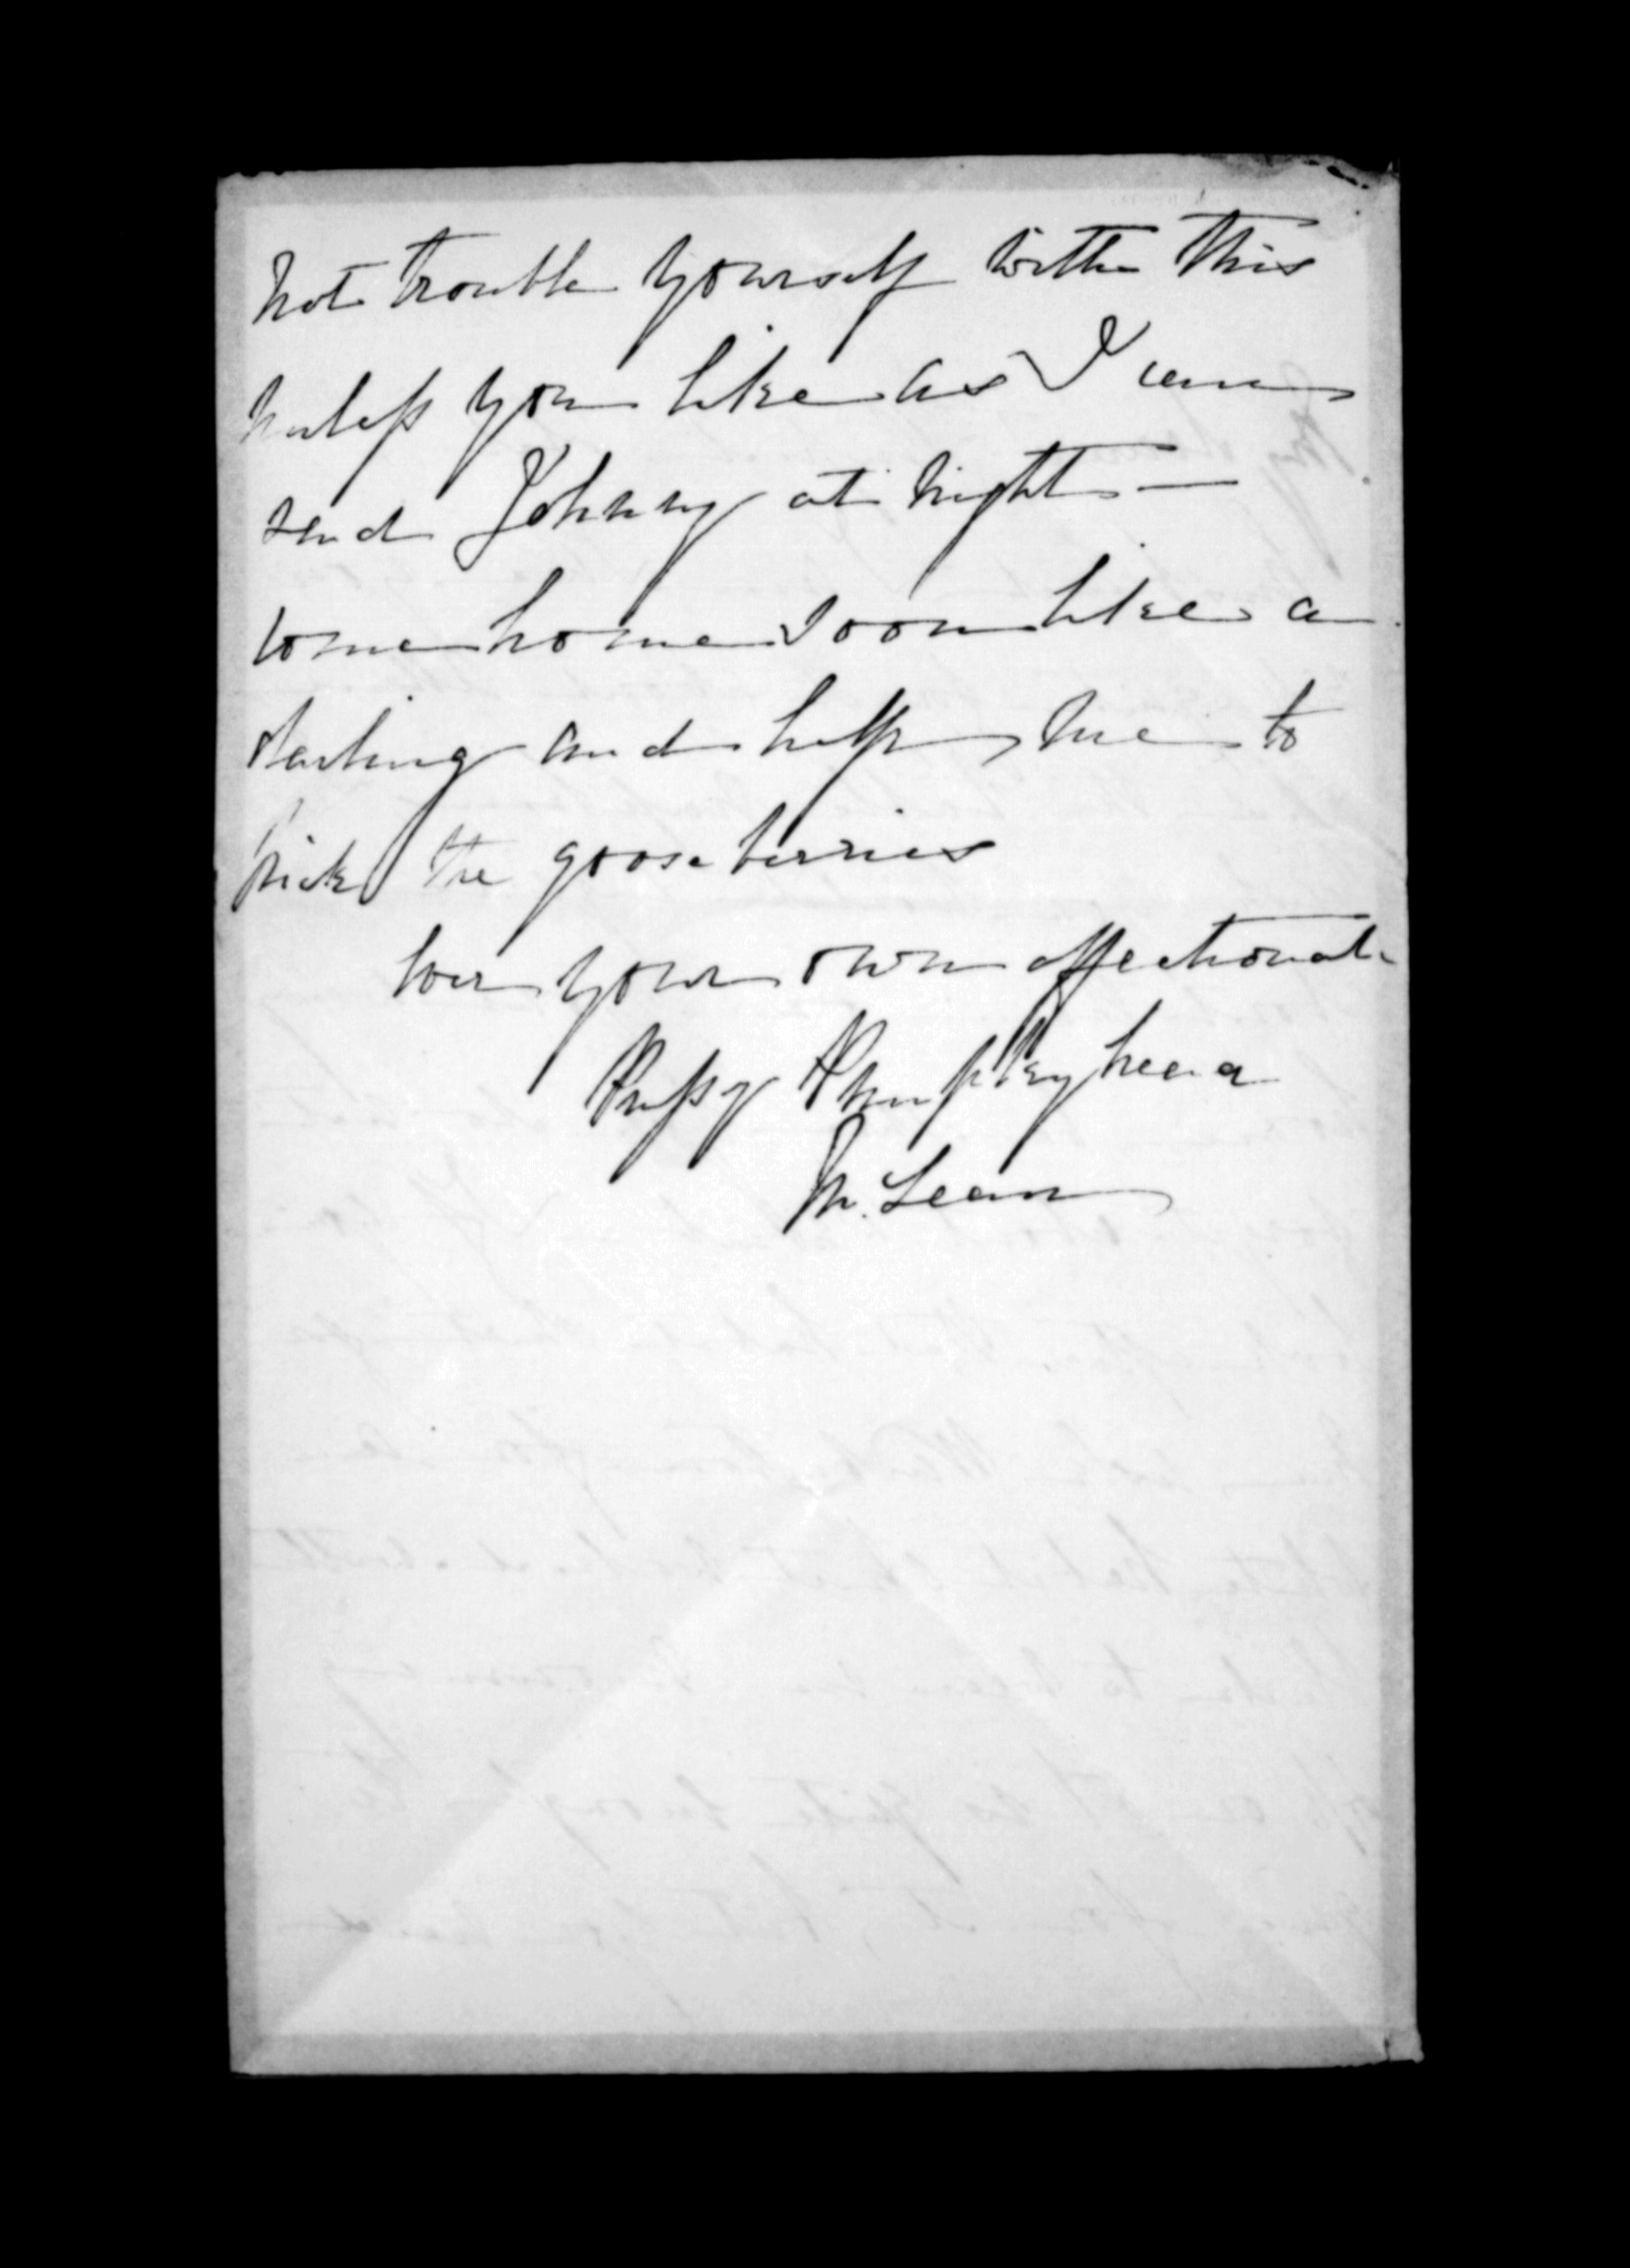 not trouble yourself with this
unless you like as I can
send Johnny at night —
Come home soon like a
darling and help me to
pick the gooseberries
Ever your own affectionate
Pussy
McLean